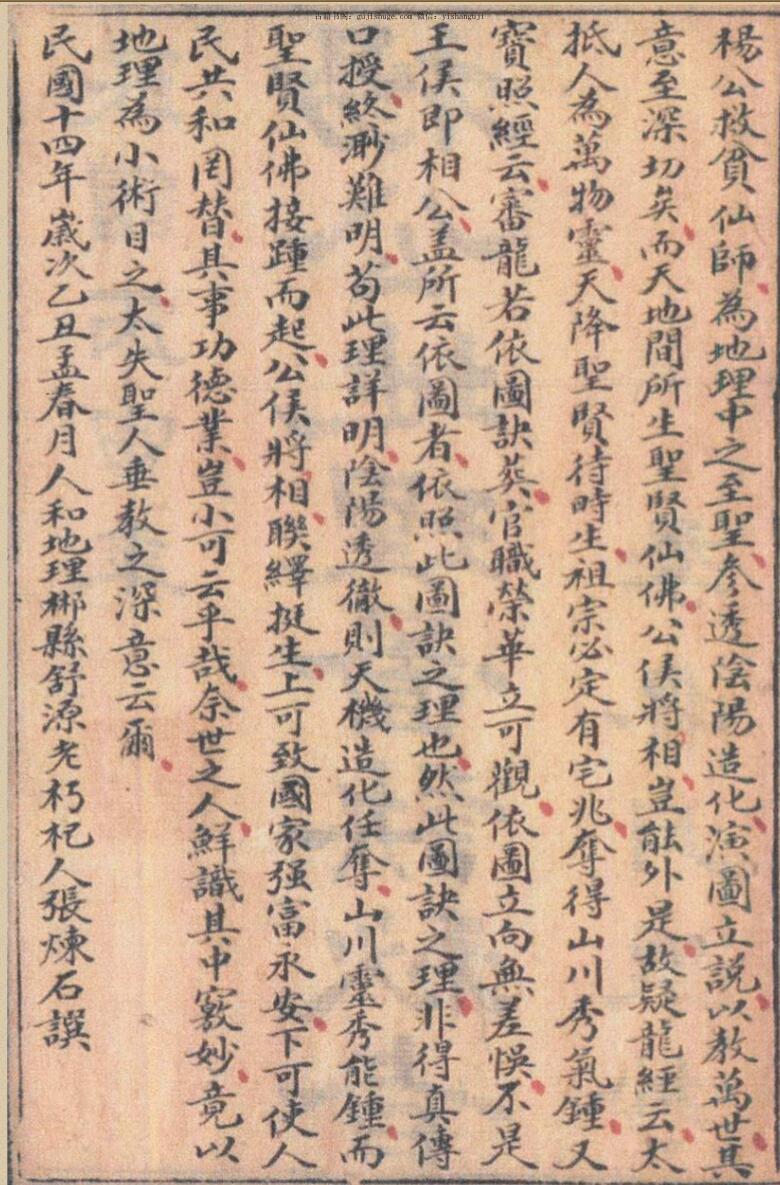 古籍书阁：gujishuge.com 微信：yishanguji
楊公救貧仙師為地理中之至聖參透陰陽造化演圖立說以教萬世其
意至深切矣而天地間所生聖賢仙佛公侯將相豈能外是故疑龍經云太
抵人為萬物靈天降聖賢待時生祖宗必定有宅兆奪得山川秀氣鍾又
寶照經云審龍若依圖訣葬官職榮華立可觀依圖立向無差悞不是
王侯即相公盖所云依圖者依照此圖訣之理也然此圖訣之理非得真傳
口授終渺難明苟此理詳明陰陽透徹則天機造化任奪山川靈秀能鍾而
聖賢仙佛接踵而起公侯將相聯繹挺生上可致國家强富永安下可使人
民共和罔替其事功德業豈小可云乎哉奈世之人鮮識其中竅妙竟以
地理為小術目之太失聖人垂教之深意云爾
民國十四年歲次乙丑孟春月人和地理郴縣舒源老朽杞人張煉石譔